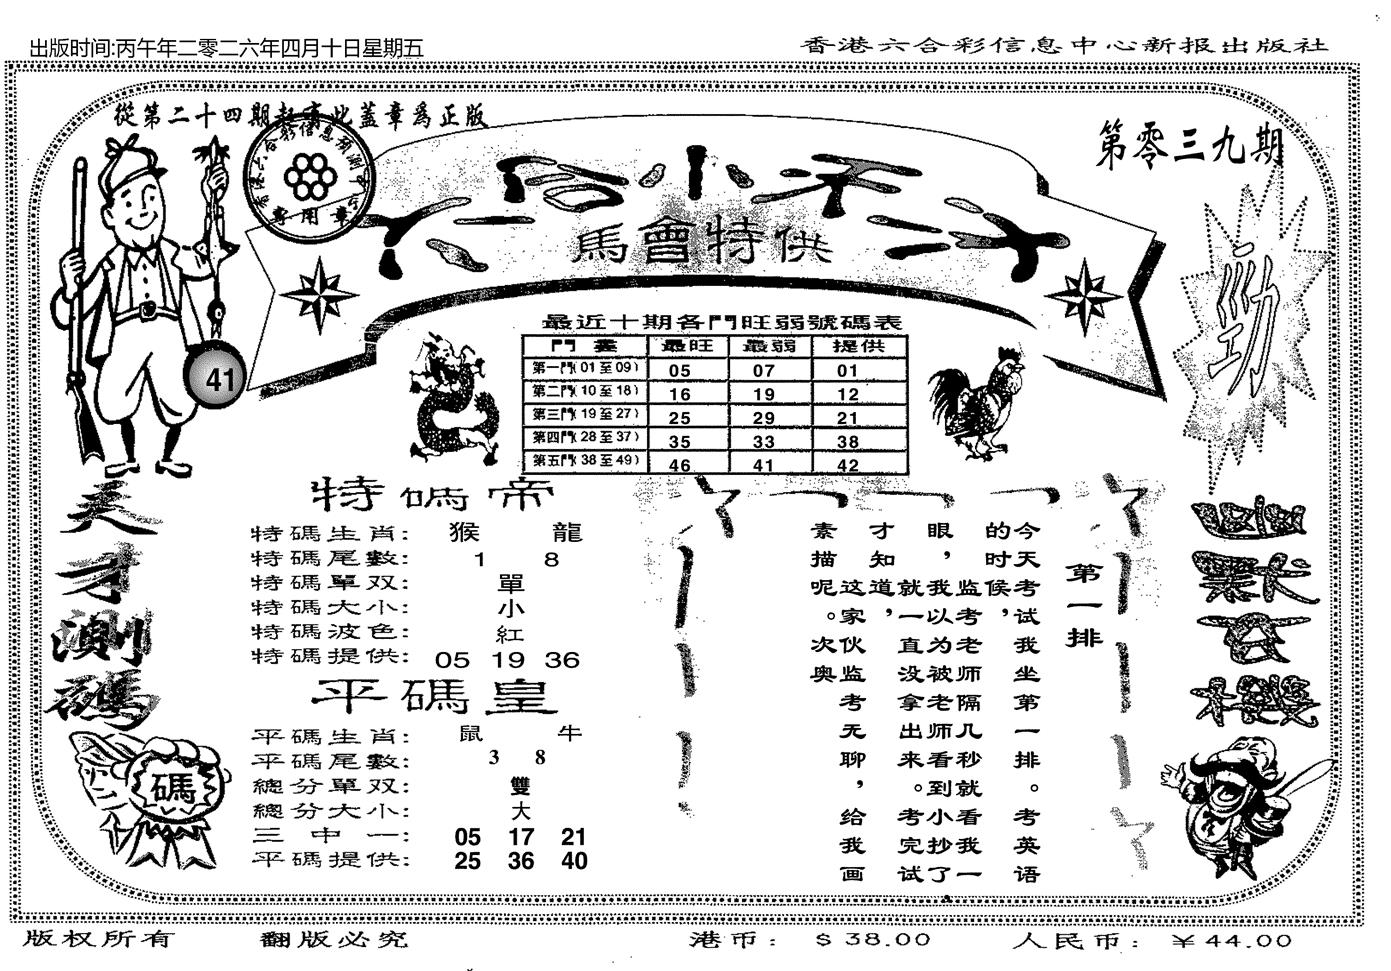 出版时间:丙午年二零二六年四月十日星期五
香港六合彩信息中心新报出版社
從第二十四期起有此蓋章爲正版
第零三九期
六合小不二
馬會特供
勁
41
最近十期各門旺弱號碼表
門 最旺 最弱 提供
第一門(01至09) 05 07 01
第二門(10至18) 16 19 12
第三門(19至27) 25 29 21
第四門(28至37) 35 33 38
第五門(38至49) 46 41 42
天才測碼
特碼帝
特碼生肖: 猴 龍
特碼尾數: 1 8
特碼單双: 單
特碼大小: 小
特碼波色: 紅
特碼提供: 05 19 36
平碼皇
平碼生肖: 鼠 牛
平碼尾數: 3 8
總分單双: 雙
總分大小: 大
三中一: 05 17 21
平碼提供: 25 36 40
碼
第一排
今天考试我坐第一排。考英语
的时候,
监考老师隔几秒就看我一
眼,我以为被老师看到小抄了
就一直没拿出来。考完试
才知道,
这家伙监考无聊,给我画
素描呢。次奥
版权所有
翻版必究
港币: $38.00
人民币: ￥44.00